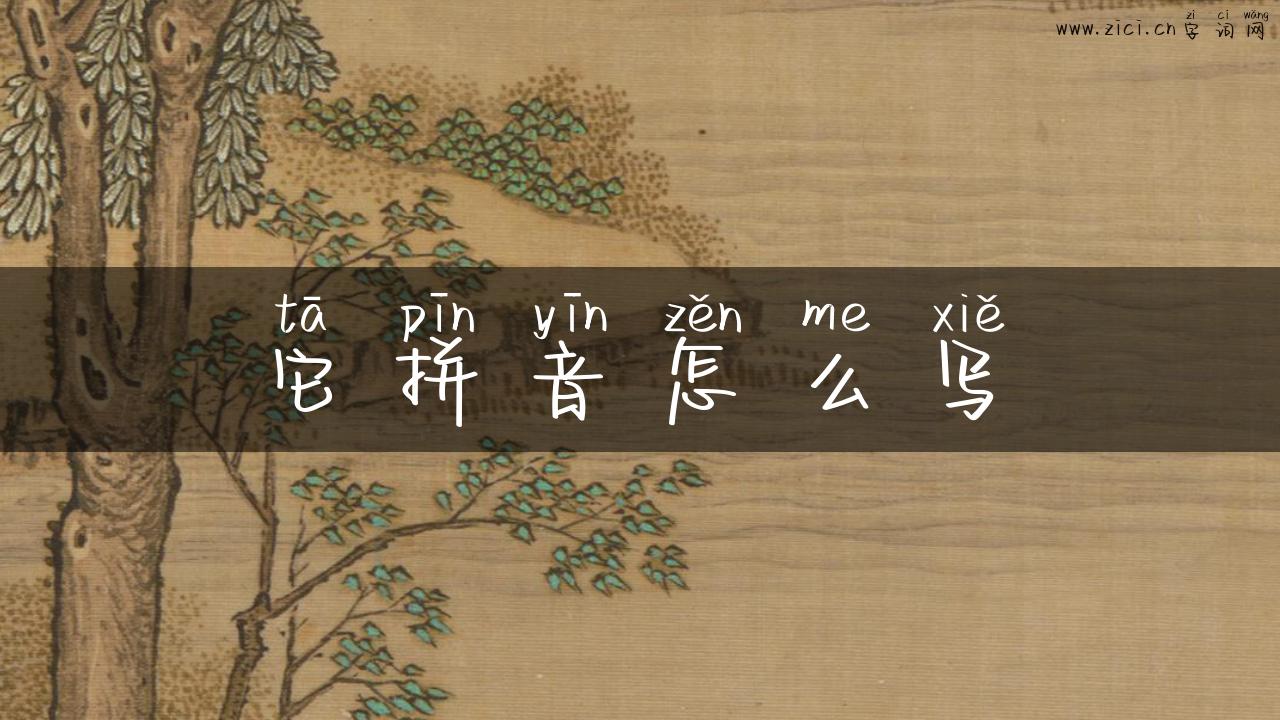 zì cí wǎng
www.zici.cn 字 词 网
tā pīn yīn zěn me xiě
它 拼 音 怎 么 写